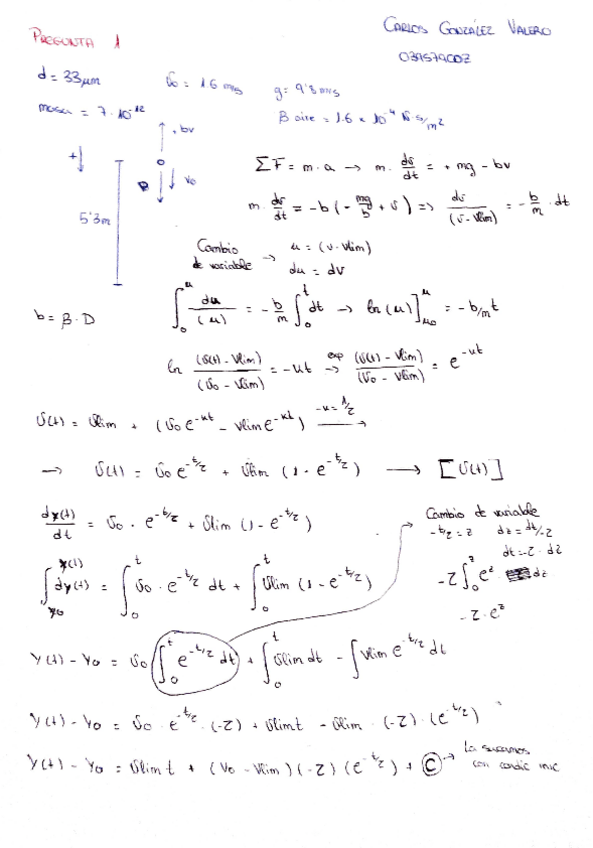 PREGUNTA 1
CARLOS GONZÁLEZ VALERO
d = 33 μm
v₀ = 1.6 m/s
g = 9'8 m/s
masa = 7·10⁻¹²
B aire = 1.6 × 10⁻⁴ N·s/m²
bv
+
v₀
5'3m
ΣF = m·a → m· dv/dt = + mg - bv
m· dv/dt = -b (- mg/b + v) => dv/(v - vlim) = - b/m · dt
Cambio de variable → u = (v - vlim)
du = dv
b = β·D
∫ du/(u) = - b/m ∫₀ᵗ dt → ln (u) ] = - b/m t
ln (v(t) - vlim)/(v₀ - vlim) = -kt exp → (v(t) - vlim)/(v₀ - vlim) = e^(-kt)
v(t) = vlim + (v₀ e^(-kt) - vlim e^(-kt))
→ v(t) = v₀ e^(-t/τ) + vlim (1 - e^(-t/τ)) → [v(t)]
dy(t)/dt = v₀ · e^(-t/τ) + vlim (1 - e^(-t/τ))
Cambio de variable
-t/τ = z dz = dt/-τ
dt = -τ · dz
∫ dy(t) = ∫₀ᵗ v₀ · e^(-t/τ) dt + ∫₀ᵗ vlim (1 - e^(-t/τ))
-τ ∫₀ᶻ e^z · dz
-τ · e^z
y(t) - y₀ = v₀ ∫₀ᵗ e^(-t/τ) dt + ∫₀ᵗ vlim dt - ∫ vlim e^(-t/τ) dt
y(t) - y₀ = v₀ · e^(-t/τ) · (-τ) + vlim t - vlim · (-τ) · (e^(-t/τ))
y(t) - y₀ = vlim t + (v₀ - vlim) (-τ) (e^(-t/τ)) + C → La sacamos con condic inic